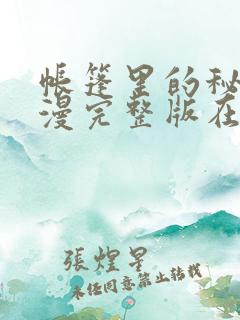 帐篷里的秘
漫完整版在
張煋星
未经同意禁止转载